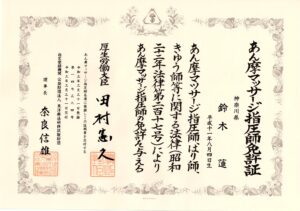 あん摩マッサージ指圧師免許証
神奈川県
鈴木 蓮
平成十一年八月四日生
あん摩マッサージ指圧師はり師
きゆう師等に関する法律(昭和
二十二年法律第二百十七号)により
あん摩マッサージ指圧師の免許を与える
厚生労働大臣 田村憲久
理事長 奈良信雄